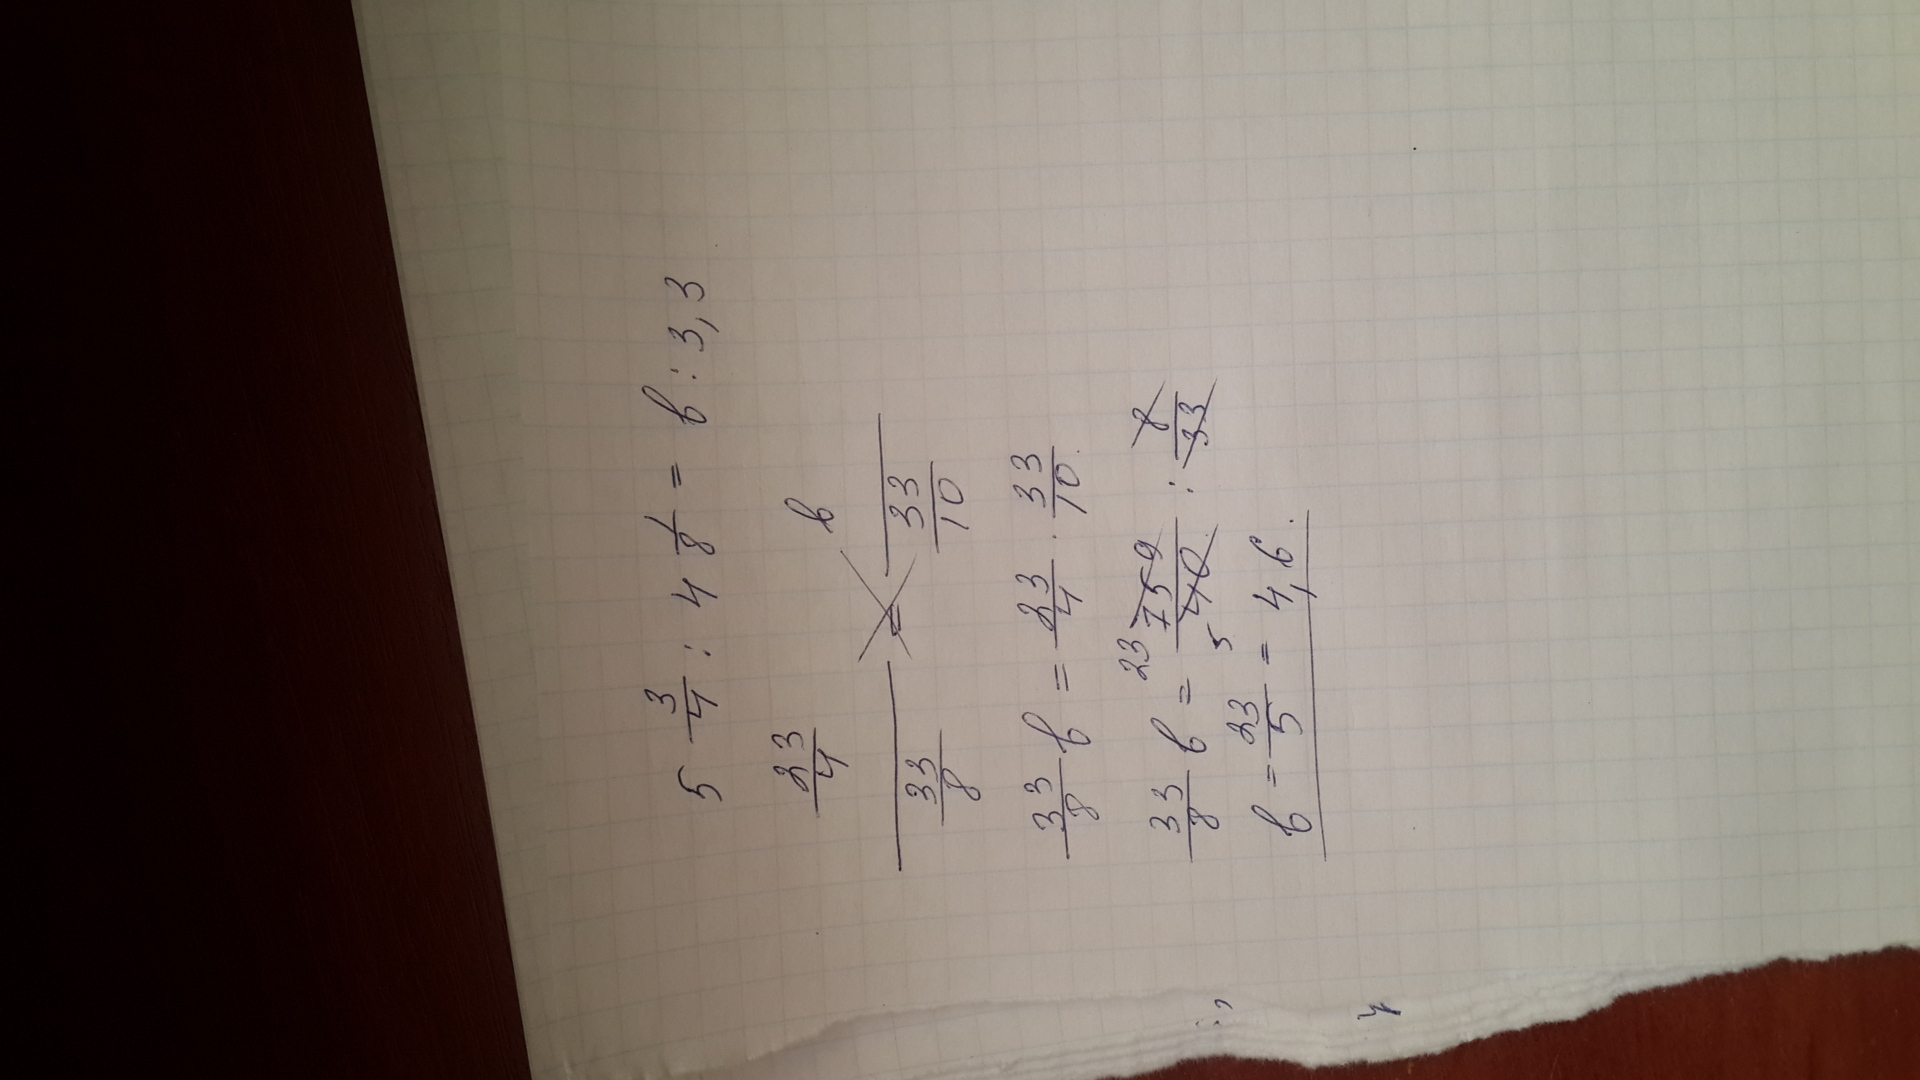 5 3/4 : 4 1/8 = b : 3,3
23/4 / 33/8 = b / 33/10
33/8 b = 23/4 · 33/10
33/8 b = 23 759/40 5 : 8/33
b = 23/5 = 4,6.